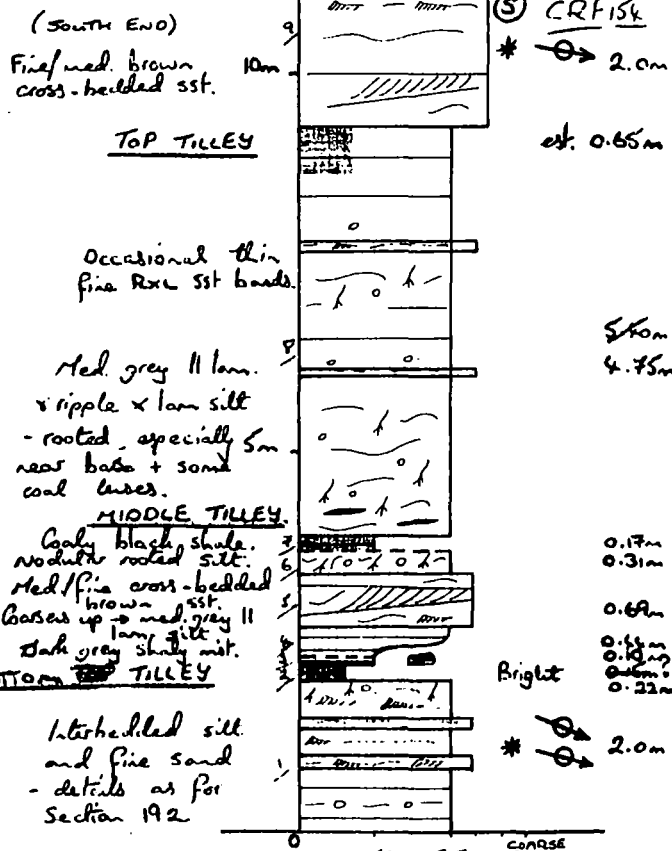 (SOUTH END)
9
Fine/med. brown
cross-bedded sst.
10m
(5) CRF 154
* 2.0m
TOP TILLEY
est. 0.65m
Occasional thin
fine RxL sst bands.
5.40m
8
4.75m
Med. grey || lam.
& ripple x lam silt
- rooted especially
near base + some
coal lenses.
5m
MIDDLE TILLEY.
Coaly black shale.
7
0.17m
Nodular rooted silt.
6
0.31m
Med/fine cross-bedded
brown sst.
5
0.69m
Coarsens up → med. grey ||
lam silt
Dark grey shaly mst.
TILLEY
Bright
0.22m
Interbedded silt
and fine sand
- details as for
Section 192
1
* 2.0m
0
COARSE